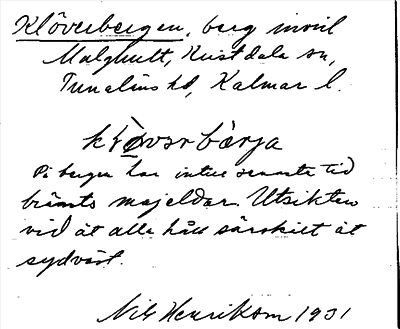 Klöverbergen, berg invid
Malghult, Kristdala sn,
Tunaläns hd, Kalmar l.
klövərbärja
På bergen har intill senaste tid
bränts majeldar. Utsikten
vid åt alla håll särskilt åt
sydväst.
Nils Henrikson 1931